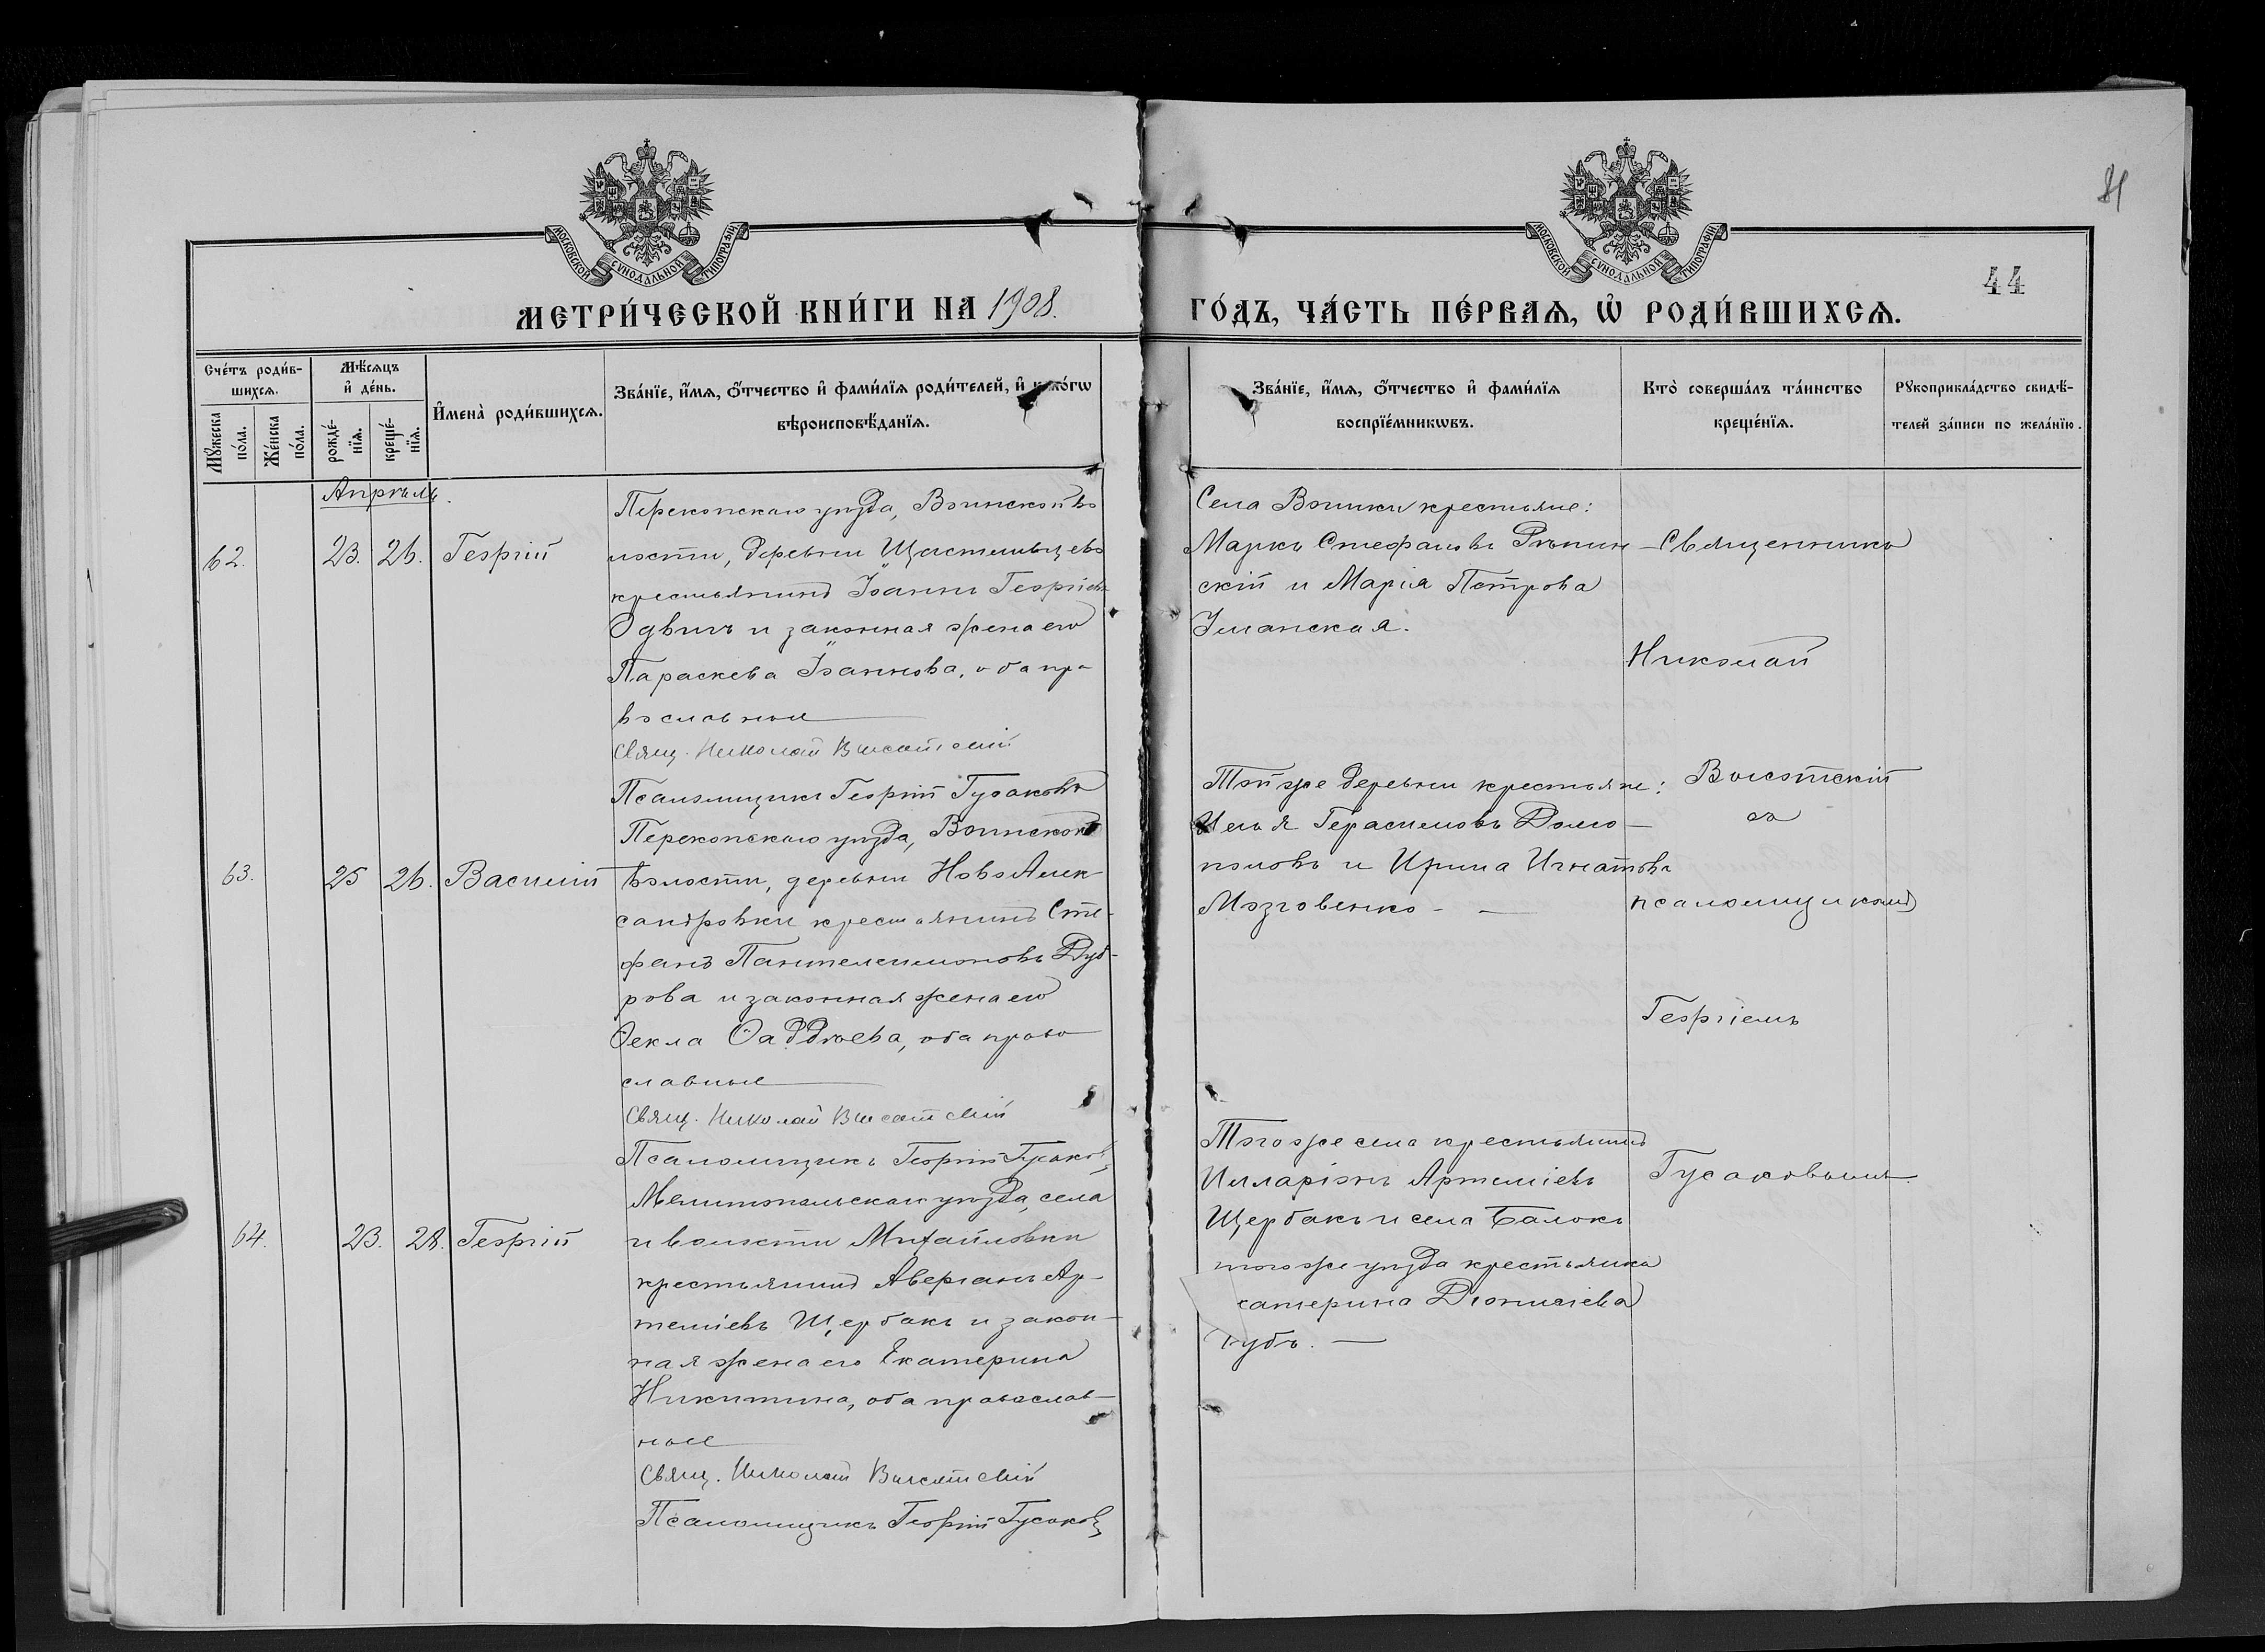 МОСКОВСКОЙ СѴНОДАЛЬНОЙ ТИПОГРАФІИ
МОСКОВСКОЙ СѴНОДАЛЬНОЙ ТИПОГРАФІИ
44
МЕТРИ́ЧЕСКОЙ КНИ́ГИ НА 1908.
ГО́ДЪ, ЧА́СТЬ ПЕ́РВАѦ, Ѡ҆ РОДИ́ВШИХСѦ.
Сче́тъ роди́в-
шихсѧ.
Мѣ́сѧцъ
и҆ де́нь.
Мꙋ́жеска
по́ла.
Же́нска
по́ла.
рожде́-
нїѧ.
креще́-
нїѧ.
И҆мена̀ роди́вшихсѧ.
Зва́нїе, и҆́мѧ, ѻ҆́тчество и҆ фами́лїѧ роди́телей, и҆ како́гѡ
вѣроисповѣ́данїѧ.
Зва́нїе, и҆́мѧ, ѻ҆́тчество и҆ фами́лїѧ
воспрїе́мникѡвъ.
Кто̀ соверша́лъ та́инство
креще́нїѧ.
Рꙋкоприкла́дство свидѣ́-
телей за́писи по жела́нїю.
Апрѣль.
62.
23. 26.
Георгій
Перекопскаго уѣзда, Воинской во
лости, деревни Щастливцево
крестьянинъ Іоаннъ Георгіевъ
и законная жена его
Параскева Іоаннова, оба пра
вославные
Свящ. Николай Высотскій
Псаломщикъ Георгій Гусаковъ
Села Воинки крестьяне:
Маркъ Стефановъ Рѣпин
скій и Марія Петрова
Уманская.
63.
25 26.
Василій
Перекопскаго уѣзда, Воинской
волости, деревни НовоАлек
сандровки крестьянинъ Сте-
фанъ Пантелеимоновъ Дуб-
рова и законная жена его
Ѳекла Ѳаддѣева, оба право
славные
Свящ. Николай Высотскій
Псаломщикъ Георгій Гусаковъ
Той же деревни крестьяне:
Илья Герасимовъ Долго-
половъ и Ирина Игнатова
Мозговенко -
64.
23. 28.
Георгій
Мелитопольскаго уѣзда, села
и волости Михайловки
крестьянинъ Аверіанъ Ар-
теміевъ Щербакъ и закон-
ная жена его Екатерина
Никитина, оба православ-
ные
Свящ. Николай Высотскій
Псаломщикъ Георгій Гусаковъ
Того же села крестьянинъ
Илларіонъ Артеміевъ
Щербакъ и села Балокъ
того же уѣзда крестьянка
катерина Діонисіева
Священникъ
Николай
Высотскій
съ
псаломщикомъ
Георгіемъ
Гусаковымъ.